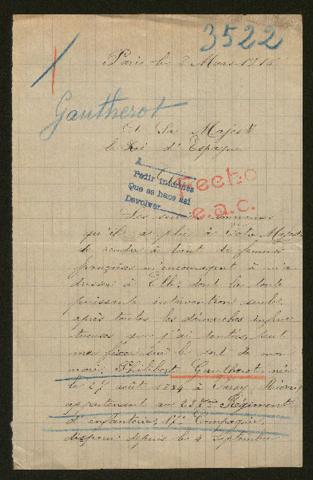 3522
Paris le 2 Mars 1915
Gautherot
A Sa Majesté
le Roi d'Espagne
A
Pedir informes
Que se hace así
Devolver
Fecho
e.a.c.
Sire
Les services
qu'il a plu à Votre Majesté
de rendre à tant de femmes
françaises m'encouragent à m'a
dresser à Elle, dont la toute
puissante intervention seule,
après toutes les démarches infruc
tueuses que j'ai tentées, peut
me fixer sur le sort de mon
mari Philibert Gautherot, né
le 27 août 1884 à
appartenant au Régiment
d'infanterie, Compagnie,
disparu depuis le 4 Septembre